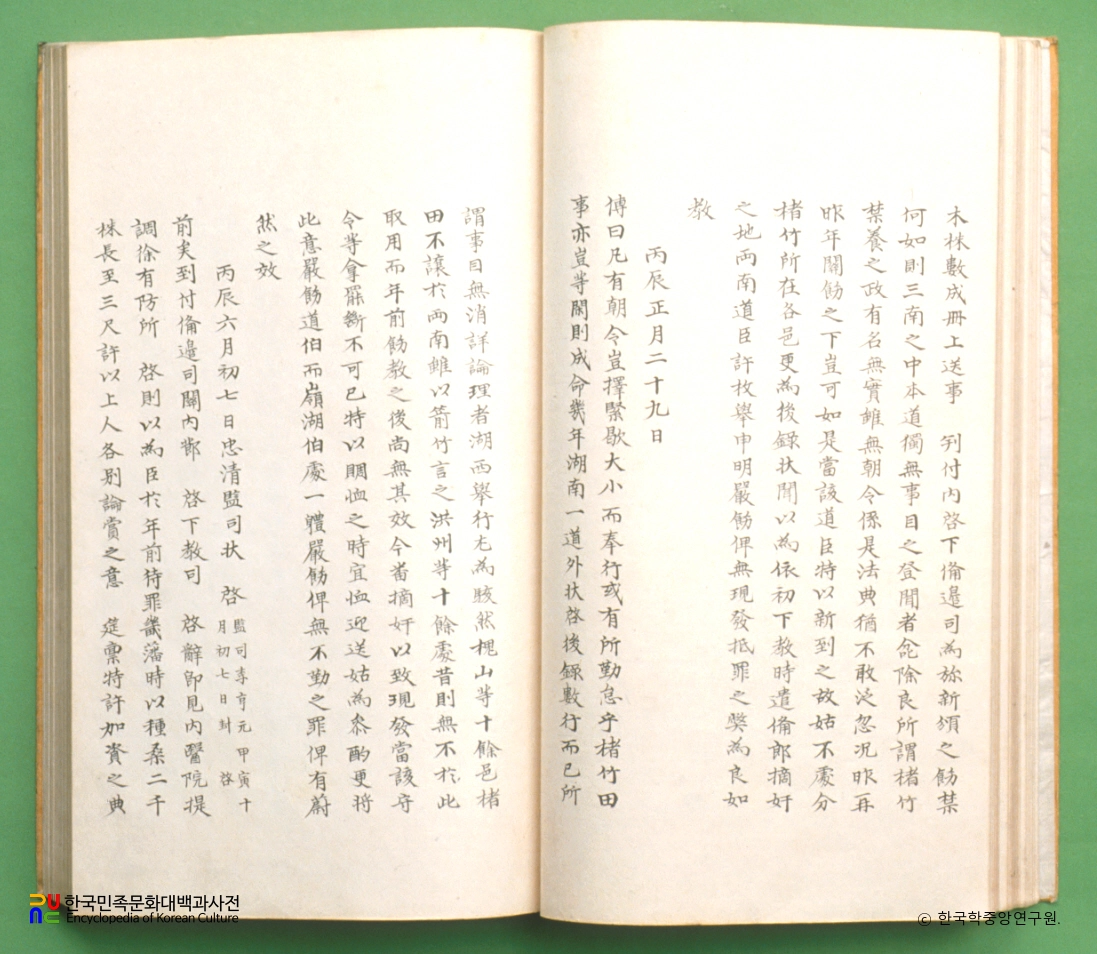 木株數成冊上送事 判付內啓下備邊司爲旀新頒之飭禁
何如則三南之中本道獨無事目之登聞者兺除良所謂楮竹
禁養之政有名無實雖無朝令係是法典猶不敢泛忽況昨再
昨年關飭之下豈可如是當該道臣特以新到之故姑不處分
楮竹所在各邑更爲後錄狀聞以爲依初下敎時遣備郞摘奸
之地両南道臣許枚擧申明嚴飭俾無現發抵罪之獘爲良如
敎
丙辰正月二十九日
傳曰凡有朝令豈擇緊歇大小而奉行或有所勤怠乎楮竹田
事亦豈等閑則成命幾年湖南一道外狀啓後錄數行而已所
謂事目無消詳論理者湖西擧行尤爲駭然槐山等十餘邑楮
田不讓於両南雖以箭竹言之洪州等十餘處昔則無不於此
取用而年前飭敎之後尚無其效今當摘奸以致現發當該守
令等拿罷斷不可已特以賙恤之時宜恤迎送姑爲叅酌更将
此意嚴飭道伯而嶺湖伯處一體嚴飭俾無不勤之罪俾有蔚
然之效
丙辰六月初七日忠清監司狀 啓 監司李亨元甲寅十
月初七日封 啓
前矣到付備邊司關內節 啓下敎司 啓辭卽見內醫院提
調徐有防所 啓則以爲臣於年前待罪畿藩時以種桑二千
株長至三尺許以上人各別論賞之意 筵稟特許加資之典
한국민족문화대백과사전
Encyclopedia of Korean Culture
© 한국학중앙연구원.